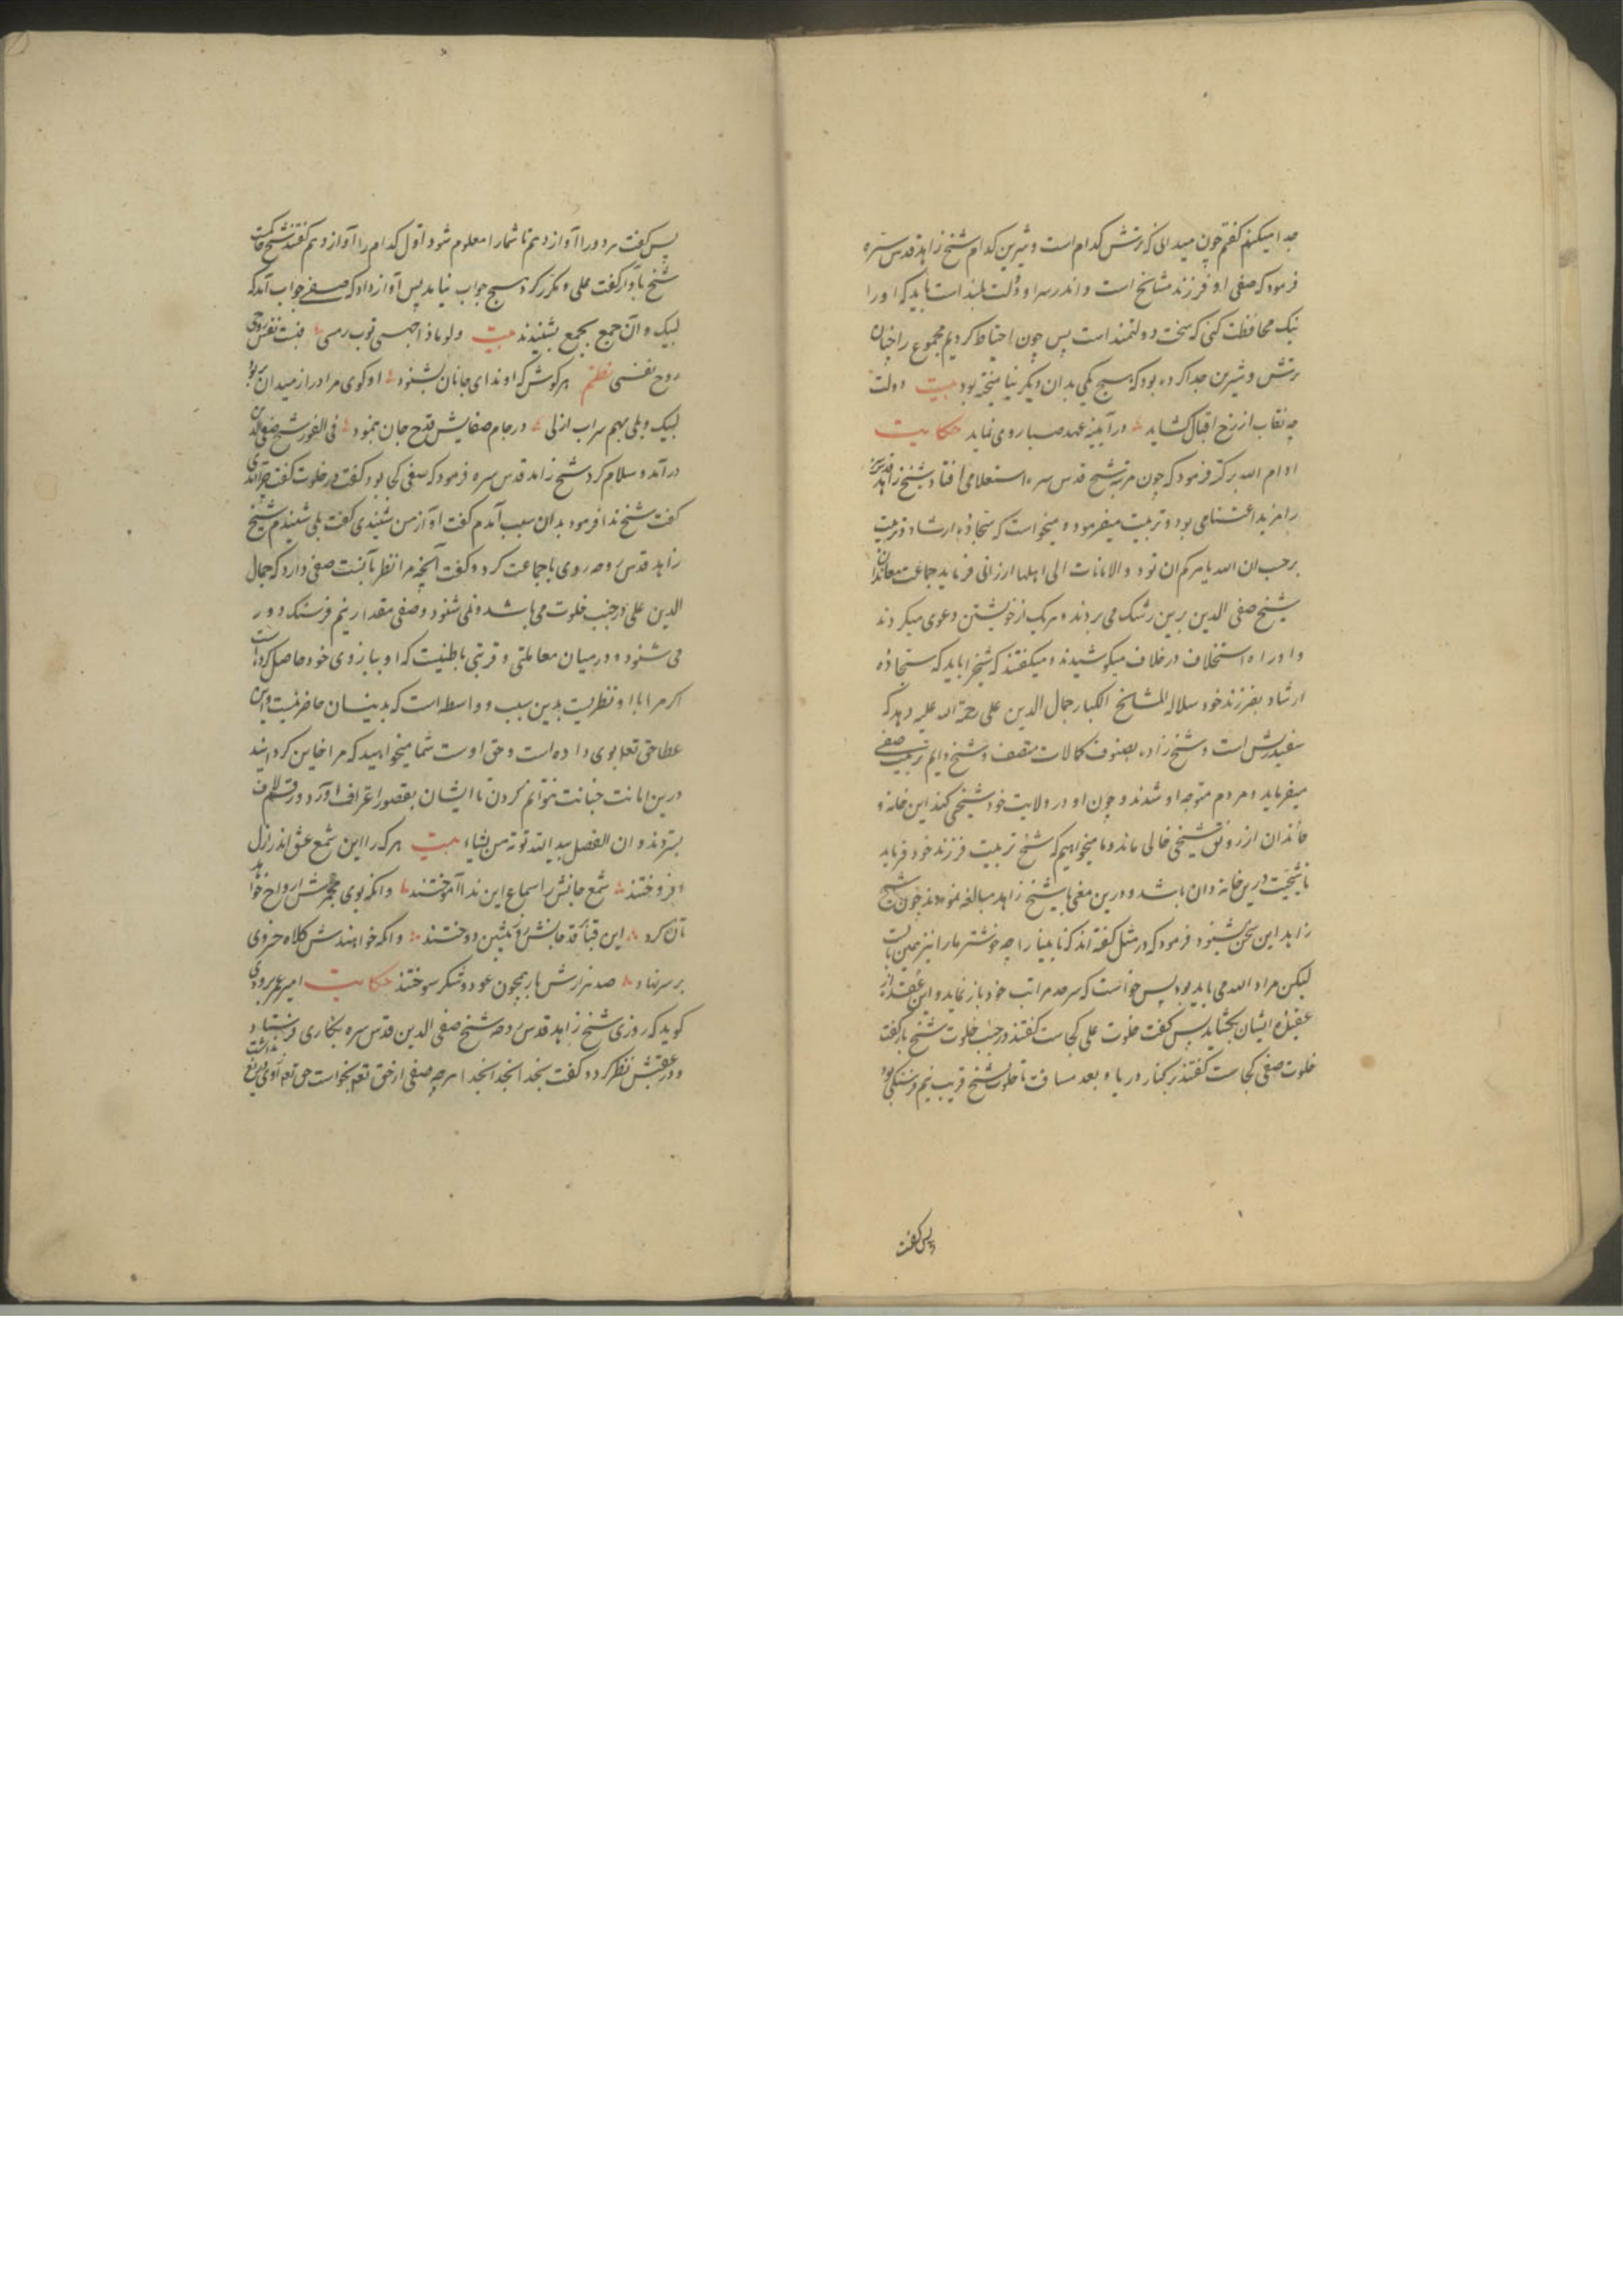 جدا میکنم کفتم چون میدانی که ترش کدام است و شیرین کدام شیخ زاهد قدس سره
فرمود که صفی او فرزند مشایخ است و اندر سر او دولت بلند است باید که او را
نیک محافظت کنی که سخت دولتمند است پس چون احتیاط کردیم مجموع را چنان
ترش و شیرین جدا کرده بود که هیچ یکی بدان دیکر نیامیخته بود بیت دولت
چه نقاب از رخ اقبال کشاید در آیینه عهد صبا روی نماید حکایت
ادام الله برکته فرمود که چون مرتبه شیخ قدس سره استعلامی افتاد شیخ زاهد قدس سره
را مزید اعتنامی بود و تربیت میفرمود و میخواست که سجاده ارشاد و تربیت
برحسب ان الله یامرکم ان تودوا الامانات الی اهلها ارزانی فرماید جماعت معاندان
شیخ صفی الدین برین رشک می بردند و هر یک از خویشتن دعوی میکردند
و او را استخلاف در خلاف میکوشیدند و میکفتند که شیخ را باید که سجاده
ارشاد بفرزند خود سلاله المشایخ الکبار جمال الدین علی رحمة الله علیه دهد که
سفیدریش است و شیخ زاده بصنوف کمالات متصف و شیخ دایم تربیت صفی
میفرماید و مردم متوجه او شدند و چون او در ولایت خود شیخی کند این خانه و
خاندان از رونق شیخی خالی ماند و ما میخواهیم که شیخ تربیت فرزند خود فرماید
تا شیخیت درین خانه دان باشد و درین معنی با شیخ زاهد مبالغه نمودند چون شیخ
زاهد این سخن بشنود فرمود که در مثل کفته اند که نابینا را چه خوشتر ما را نیز همین است
لیکن مراد الله می باید بود پس خواست که سر حد مراتب خود باز نماید و این عقده از
عقیده ایشان بکشاید پس کفت خلوت علی کجاست کفتند در جنب خلوت شیخ باز کفت
خلوت صفی کجاست کفتند بر کنار دریا و بعد مسافت تا خلوت شیخ قریب نیم فرسنکی بود
پس کفت
پس کفت هر دو را آواز دهم تا شما را معلوم شود اول کدام را آواز دهم کفتند شیخ حاکمست
شیخ باواز کفت علی و مکرر کرد هیچ جواب نیامد پس آواز داد که صفی جواب آمد که
لبیک و آن جمع بجمع بشنیدند بیت
روح نفسی نظم هر کوش که او ندای جانان بشنود او کوی مراد را ز میدان بربود
لبیک و بلی بهم سراب ازلی در جام صفایش قدح جان بنمود فی الفور شیخ صفی الدین
درآمد و سلام کرد شیخ زاهد قدس سره فرمود که صفی کجا بود کفت در خلوت کفت چرا آمدی
کفت شیخ ندا فرمود بدان سبب آمدم کفت آواز من شنیدی کفت بلی شنیدم شیخ
زاهد قدس روحه روی با جماعت کرد و کفت آنچه مرا نظر با نسبت صفی دارد که جمال
الدین علی در جنب خلوت می باشد و نمی شنود و صفی مقدار نیم فرسنک دور
می شنود و در میان معاملتی و قربتی باطنیت که او ببازوی خود حاصل کرده است
اکر مرا با او نظریست بدین سبب و واسطه است که بدینسان حاضر نیست و این
عطا حق تعالی بوی داده است و حق اوست شما میخواهید که مرا خاین کردانید
درین امانت خیانت نتوانم کردن تا ایشان بقصور اعتراف آورد و رقم لاف
بستردند و ان الفضل بید الله یوتیه من یشاء بیت هر که را این شمع عشق اندر ازل
افروختند شمع جانش را سماع این ندا آموختند وانکه بوی مجمرش ارواح خواهد
تازه کرد این قبا بر قد جانش روز پیشین دوختند وانکه خواهندش کلاه خسروی
بر سر نهاد صد هزارش بار همچون عود و شکر سوختند حکایت امیر عمر برودی
کوید که روزی شیخ زاهد قدس روحه شیخ صفی الدین قدس سره بکاری فرستاد
و در عقبش نظر کرد و کفت بخدا بخدا بخدا هر چه صفی از حق تعالی بخواست حق تعالی از وی دریغ نداشت